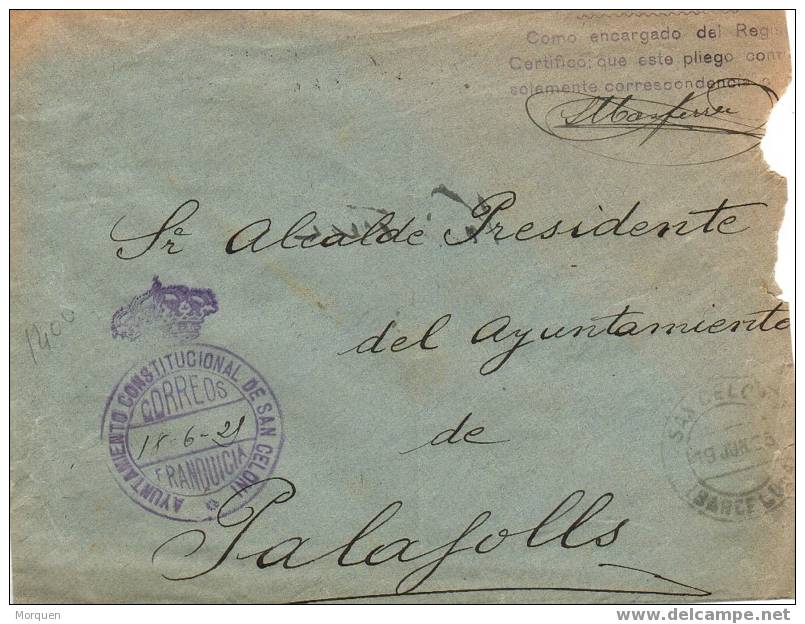 Como encargado del Regis
Certifico; que este pliego cont
solamente correspondencia o
Sr. Alcalde Presidente
del Ayuntamiento
de
Palafolls
1400
AYUNTAMIENTO CONSTITUCIONAL DE SAN CELONI
CORREOS
18-6-21
FRANQUICIA
SAN CELONI
19 JUN
(BARCELONA)
Morquen
www.delcampe.net